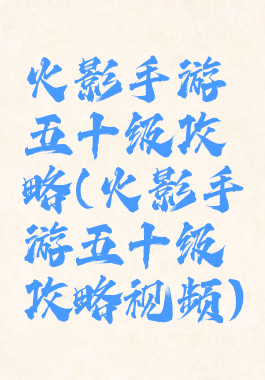 火影手游
五十级攻
略(火影手
游五十级
攻略视频)